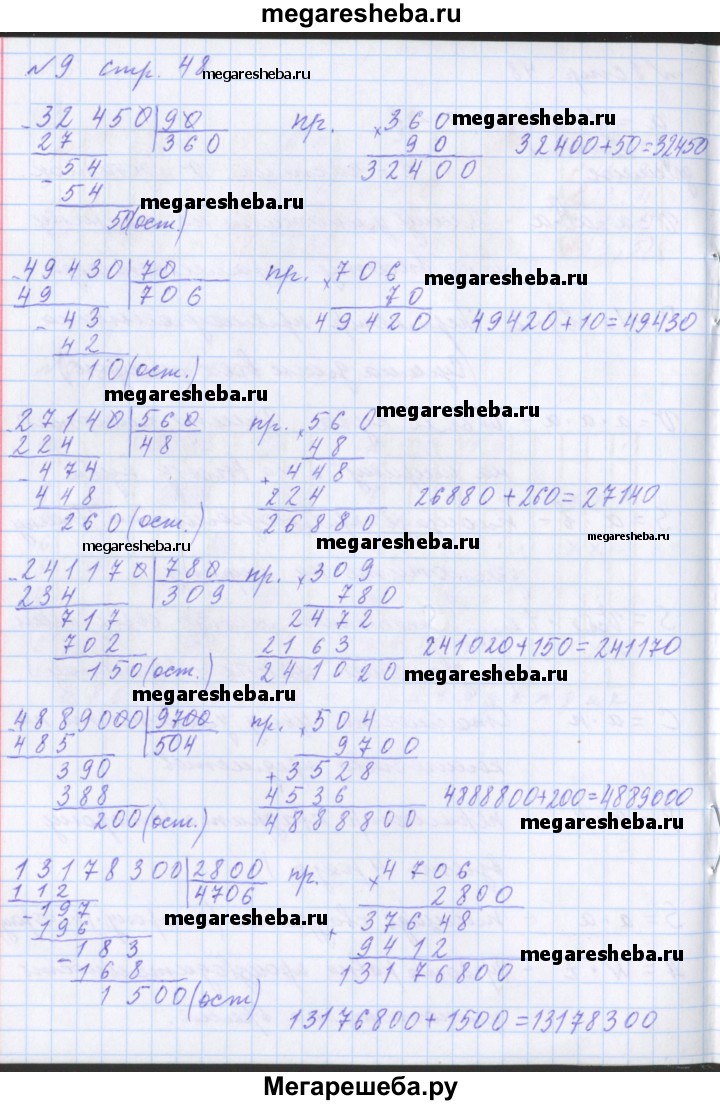 megaresheba.ru
N 9 стр. 48 megaresheba.ru
- 32 450 | 90 пр. × 360 megaresheba.ru
27 | 360 90 32400+50=32450
- 54 32400
54 megaresheba.ru
50(ост.)
- 49430 | 70 пр. × 706 megaresheba.ru
49 | 706 70
- 43 49420 49420+10=49430
42
10(ост.)
megaresheba.ru megaresheba.ru
- 27140 | 560 пр. × 560
224 | 48 48
- 474 + 448
448 224 26880+260=27140
260(ост.) 26880
megaresheba.ru megaresheba.ru megaresheba.ru
- 241170 | 780 пр. × 309
234 | 309 780
717 2472
702 2163 241020+150=241170
150(ост.) 241020 megaresheba.ru
megaresheba.ru
- 4889000 | 9700 пр. × 504
485 | 504 9700
390 + 3528
388 4536 4888800+200=4889000
200(ост.) 4888800 megaresheba.ru
13178300 | 2800 пр. × 4706
112 | 4706 2800
- 197 + 37648
196 megaresheba.ru 9412 megaresheba.ru
- 183 13176800
168
1500(ост)
13176800+1500=13178300
Мегарешеба.ру